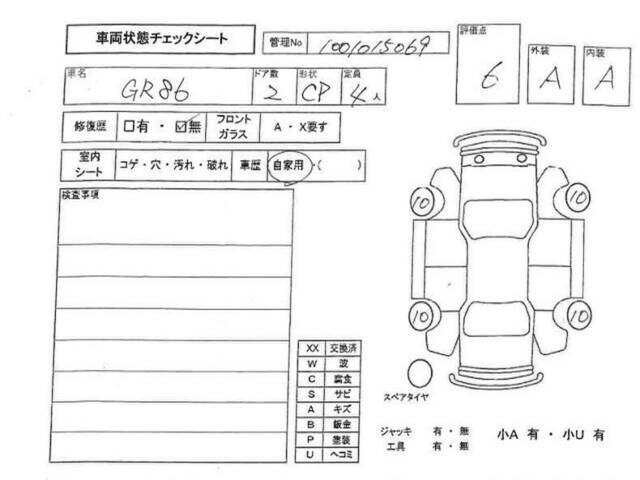 車両状態チェックシート
管理No 1001015069
評価点 6
外装 A
内装 A
車名 GR86
ドア数 2
形状 CP
定員 4人
修復歴 □有・☑無
フロントガラス A・X要す
室内シート コゲ・穴・汚れ・破れ
車歴 自家用・( )
検査事項
10 10
10 10
XX 交換済
W 波
C 腐食
S サビ
A キズ
B 鈑金
P 塗装
U ヘコミ
スペアタイヤ
ジャッキ 有・無
工具 有・無
小A 有・小U 有